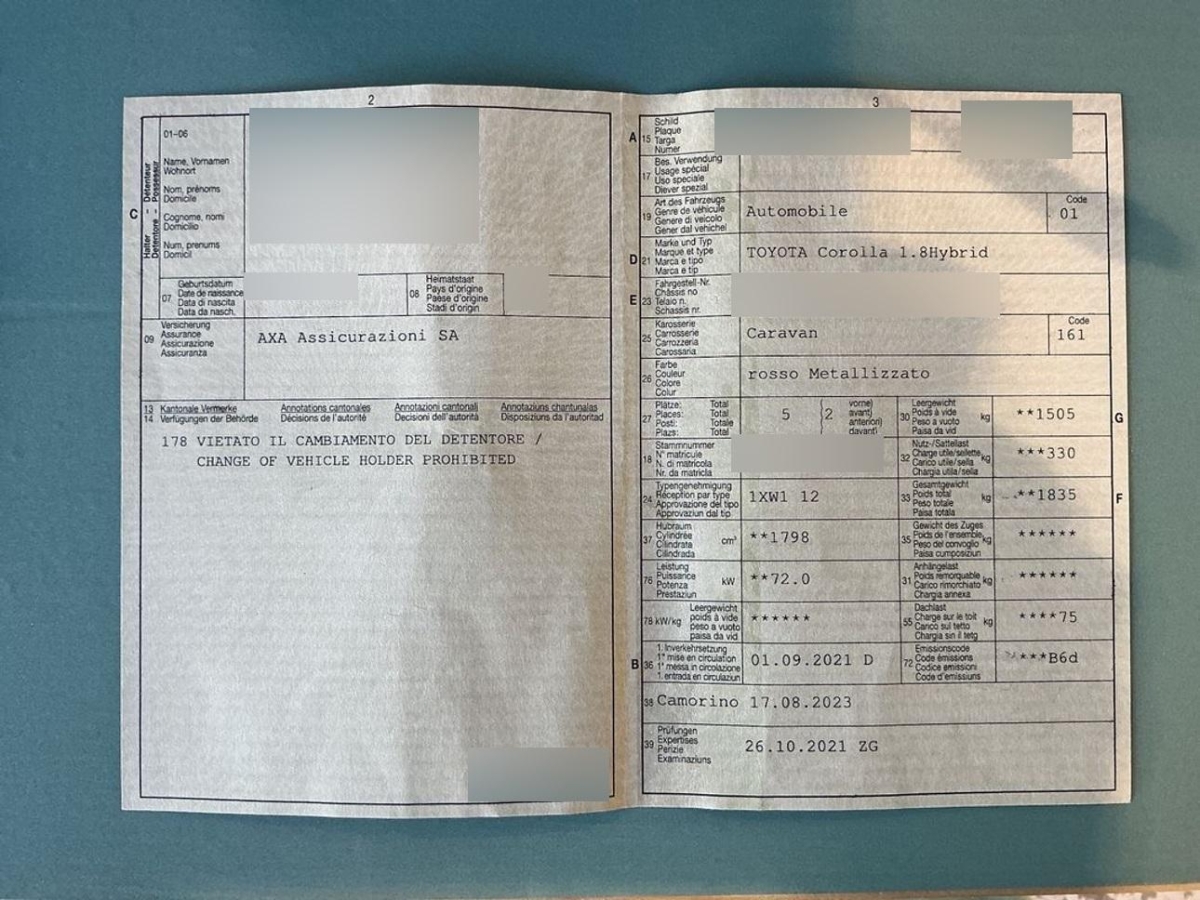 2
01–06
Halter - Détenteur
Detentore - Possessur
C
Name, Vornamen
Wohnort
Nom, prénoms
Domicile
Cognome, nomi
Domicilio
Num, prenums
Domicil
07
Geburtsdatum
Date de naissance
Data di nascita
Data da nasch.
08
Heimatstaat
Pays d'origine
Paese d'origine
Stadi d'origin
09
Versicherung
Assurance
Assicurazione
Assicuranza
AXA Assicurazioni SA
13 Kantonale Vermerke Annotations cantonales Annotazioni cantonali Annotaziuns chantunalas
14 Verfügungen der Behörde Décisions de l'autorité Decisioni dell'autorità Disposiziuns da l'autoritad
178 VIETATO IL CAMBIAMENTO DEL DETENTORE /
CHANGE OF VEHICLE HOLDER PROHIBITED
3
A 15
Schild
Plaque
Targa
Numer
17
Bes. Verwendung
Usage spécial
Uso speciale
Diever spezial
19
Art des Fahrzeugs
Genre de véhicule
Genere di veicolo
Gener dal vehichel
Automobile
Code
01
D 21
Marke und Typ
Marque et type
Marca e tipo
Marca e tip
TOYOTA Corolla 1.8Hybrid
E 23
Fahrgestell-Nr.
Châssis no
Telaio n.
Schassis nr.
25
Karosserie
Carrosserie
Carrozzeria
Carossaria
Caravan
Code
161
26
Farbe
Couleur
Colore
Colur
rosso Metallizzato
27
Plätze: Total
Places: Total
Posti: Totale
Plazs: Total
5 (2
vorne)
avant)
anteriori)
davant)
30
Leergewicht
Poids à vide
Peso a vuoto
Paisa da vid
kg
**1505
G
18
Stammnummer
N° matricule
N. di matricola
Nr. da matricla
32
Nutz-/Sattellast
Charge utile/sellette
Carico utile/sella
Chargia utila/sella
kg
***330
24
Typengenehmigung
Réception par type
Approvazione del tipo
Approvaziun dal tip
1XW1 12
33
Gesamtgewicht
Poids total
Peso totale
Paisa totala
kg
**1835
F
37
Hubraum
Cylindrée
Cilindrata
Cilindrada
cm³
**1798
35
Gewicht des Zuges
Poids de l'ensemble
Peso del convoglio
Paisa cumposiziun
kg
******
76
Leistung
Puissance
Potenza
Prestaziun
kW
**72.0
31
Anhängelast
Poids remorquable
Carico rimorchiato
Chargia annexa
kg
******
78 kW/kg
Leergewicht
poids à vide
peso a vuoto
paisa da vid
******
55
Dachlast
Charge sur le toit
Carico sul tetto
Chargia sin il tetg
kg
****75
B 36
1. Inverkehrsetzung
1re mise en circulation
1a messa in circolazione
1. entrada en circulaziun
01.09.2021 D
72
Emissionscode
Code émissions
Codice emissioni
Code d'emissiuns
***B6d
38 Camorino 17.08.2023
39
Prüfungen
Expertises
Perizie
Examinaziuns
26.10.2021 ZG